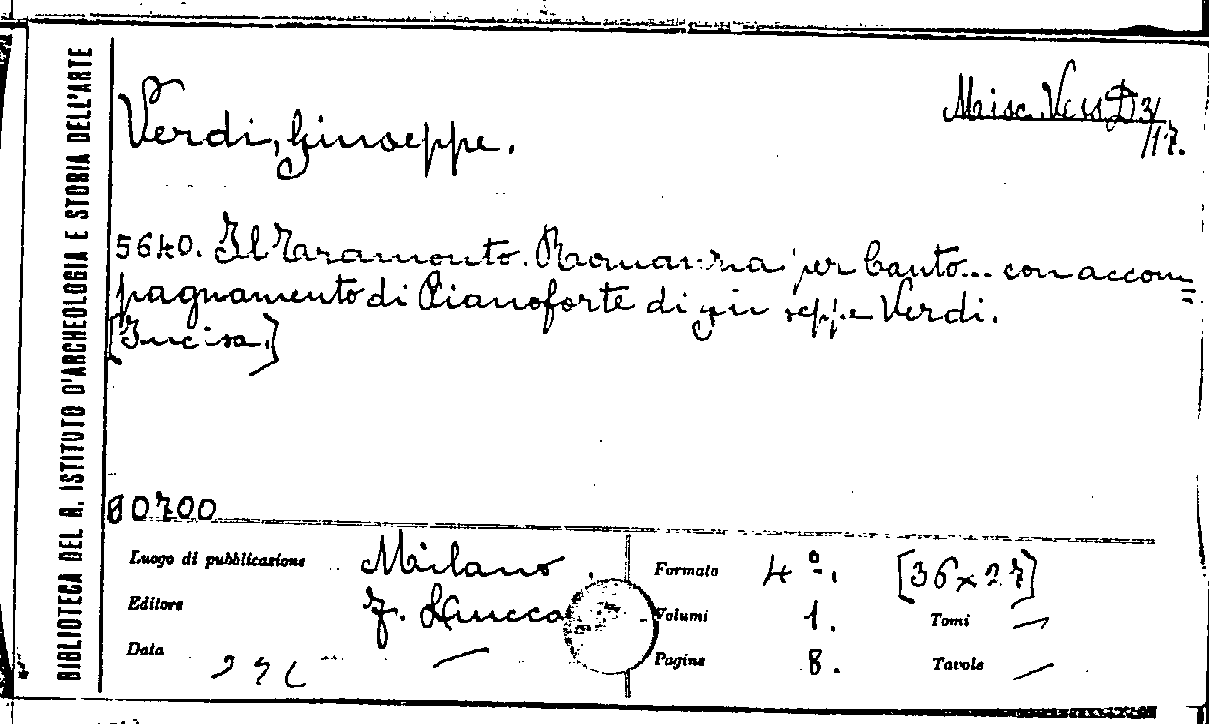 BIBLIOTECA DEL R. ISTITUTO D'ARCHEOLOGIA E STORIA DELL'ARTE
Misc. Vess D3/
/17.
Verdi, Giuseppe.
5640. Il Taramonto. Romanza per Canto... con accom=
pagnamento di Pianoforte di giuseppe Verdi.
[Incisa.]
80700
Luogo di pubblicazione Milano.
Editore F. Lucca
Data —
Formato 4º. [36x27]
Volumi 1. Tomi —
Pagine 8. Tavole —